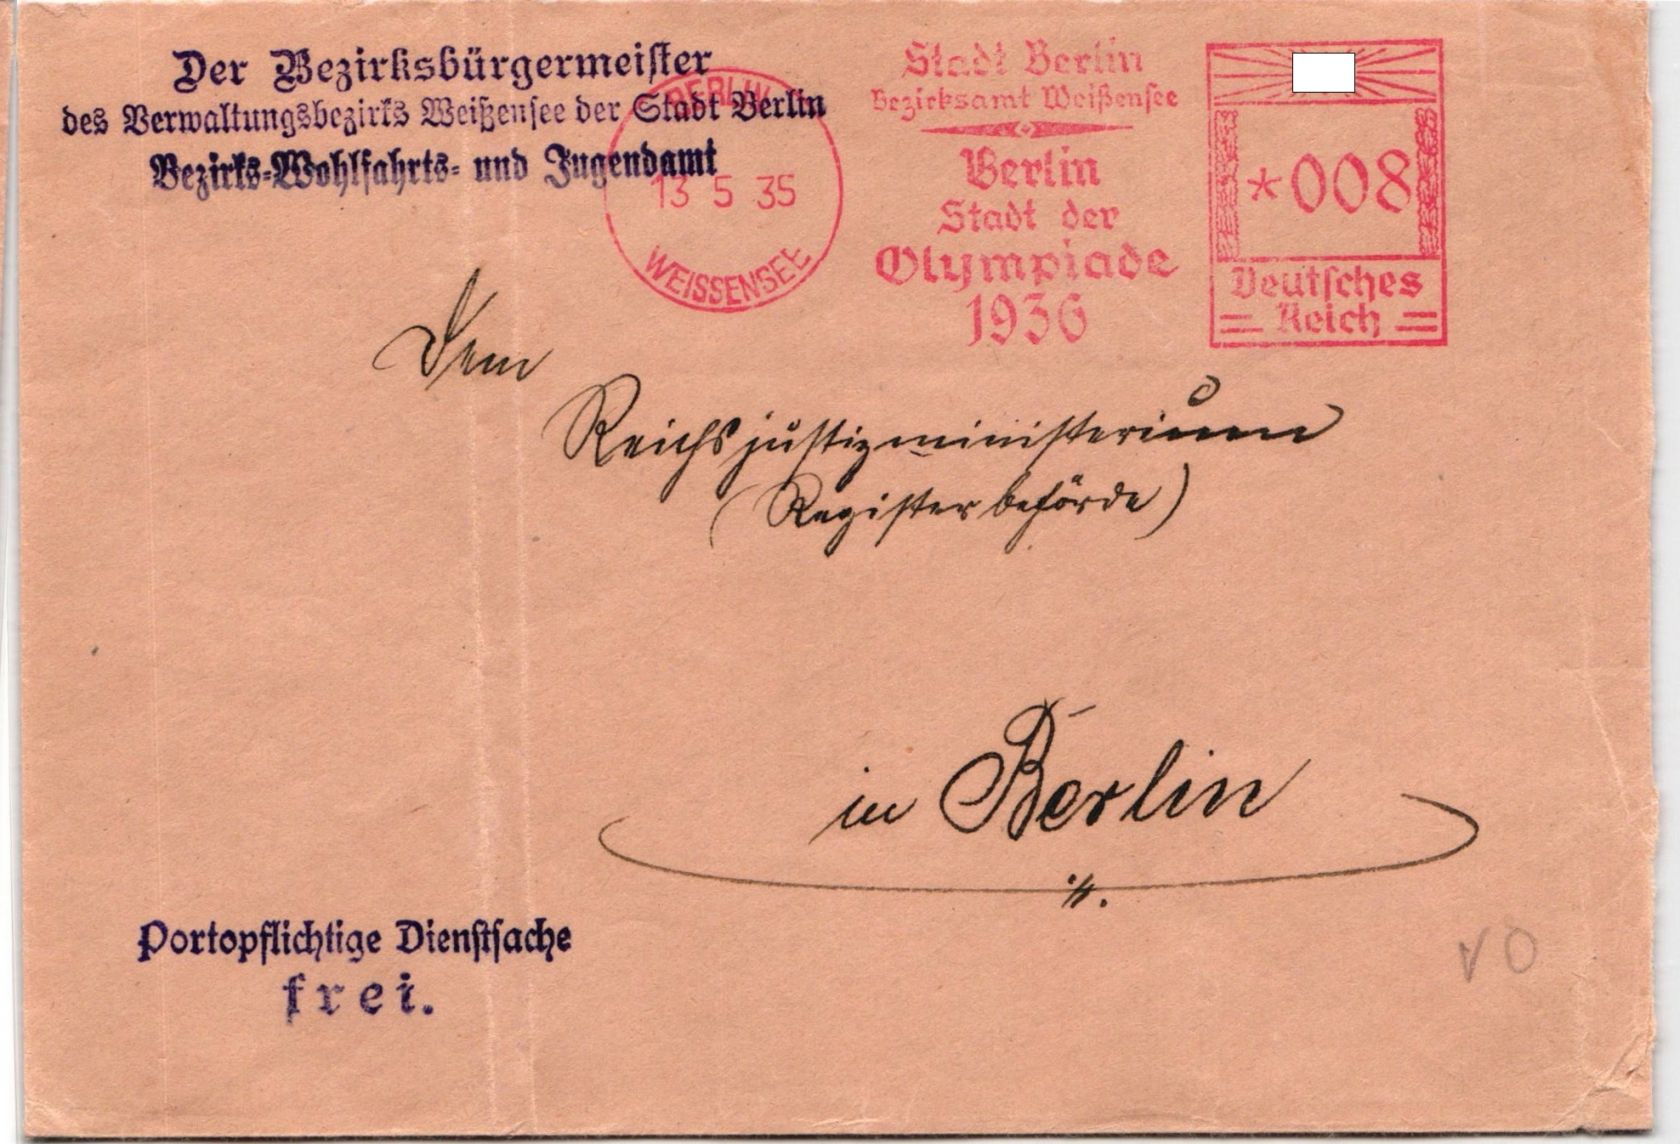 Der Bezirksbürgermeister
des Verwaltungsbezirks Weißensee der Stadt Berlin
Bezirks-Wohlfahrts- und Jugendamt
BERLIN
13 5 35
WEISSENSEE
Stadt Berlin
Bezirksamt Weißensee
Berlin
Stadt der
Olympiade
1936
*008
Deutsches
Reich
Dem
Reichsjustizministerium
(Registerbehörde)
in Berlin
Portopflichtige Dienstsache
frei.